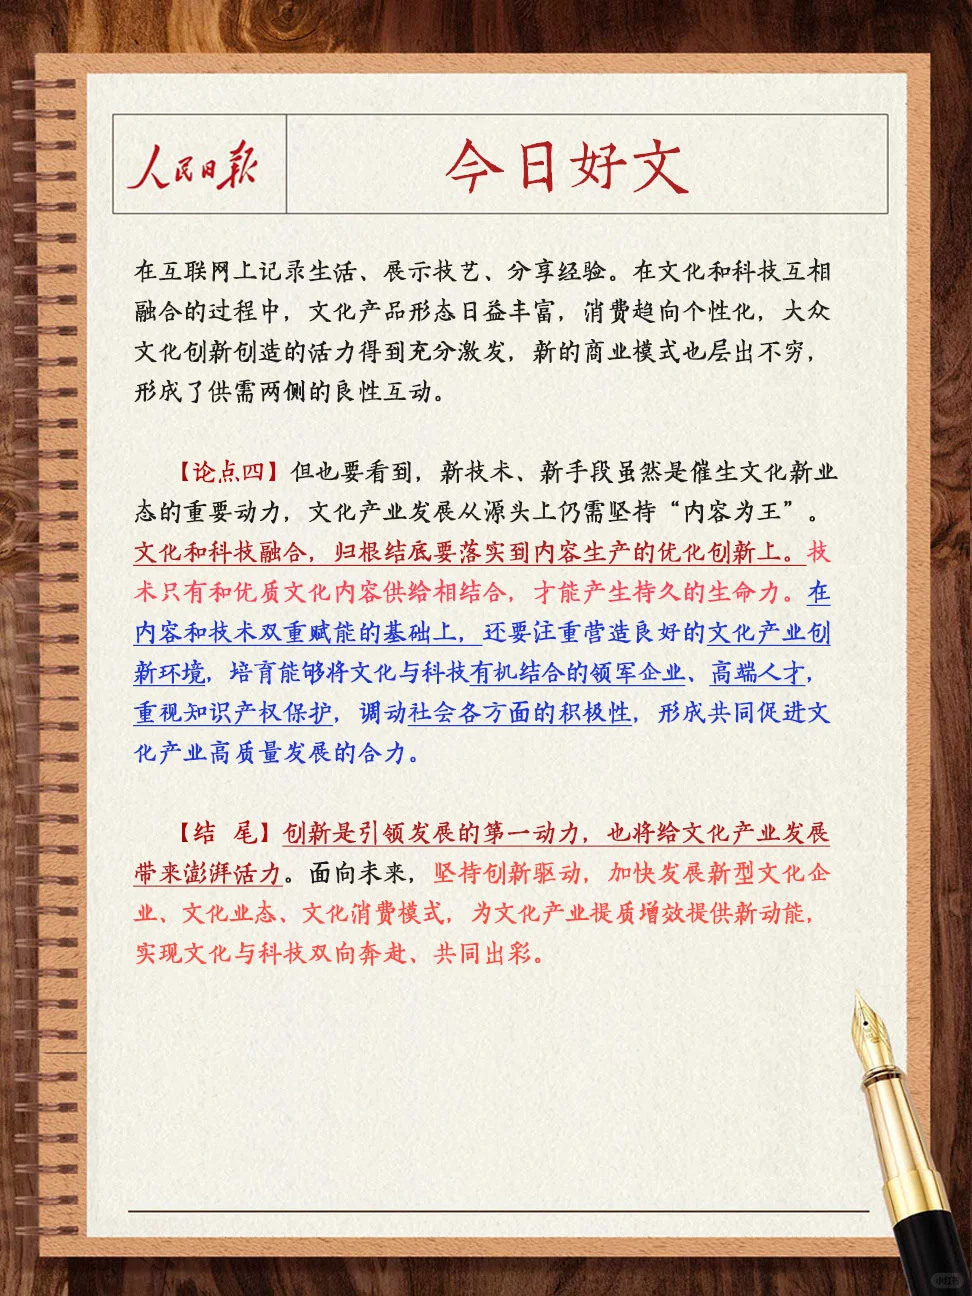 人民日报
今日好文
在互联网上记录生活、展示技艺、分享经验。在文化和科技互相
融合的过程中，文化产品形态日益丰富，消费趋向个性化，大众
文化创新创造的活力得到充分激发，新的商业模式也层出不穷，
形成了供需两侧的良性互动。
【论点四】但也要看到，新技术、新手段虽然是催生文化新业
态的重要动力，文化产业发展从源头上仍需坚持“内容为王”。
文化和科技融合，归根结底要落实到内容生产的优化创新上。技
术只有和优质文化内容供给相结合，才能产生持久的生命力。在
内容和技术双重赋能的基础上，还要注重营造良好的文化产业创
新环境，培育能够将文化与科技有机结合的领军企业、高端人才，
重视知识产权保护，调动社会各方面的积极性，形成共同促进文
化产业高质量发展的合力。
【结 尾】创新是引领发展的第一动力，也将给文化产业发展
带来澎湃活力。面向未来，坚持创新驱动，加快发展新型文化企
业、文化业态、文化消费模式，为文化产业提质增效提供新动能，
实现文化与科技双向奔赴、共同出彩。
小红书